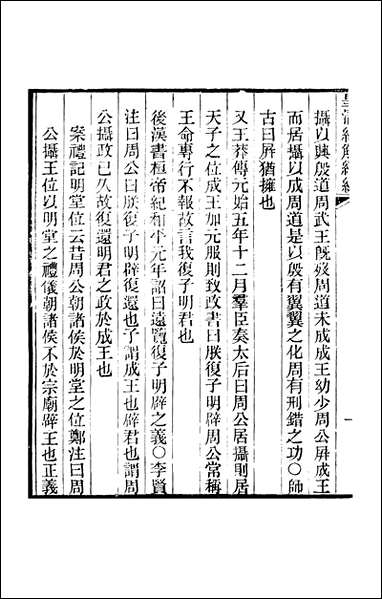 攝以興殷道周武王既歿周道未成成王幼少周公屛成王
而居攝以成周道是以殷有翼翼之化周有刑錯之功○師
古曰屛猶擁也
又王莽傳元始五年十二月羣臣奏太后曰周公居攝則居
天子之位成王加元服則致政書曰朕復子明辟周公常稱
王命專行不報故言我復子明君也
後漢書桓帝紀和平元年詔曰遠覽復子明辟之義○李賢
注曰周公曰朕復子明辟復還也子謂成王也辟君也謂周
公攝政已久故復還明君之政於成王也
案禮記明堂位云昔周公朝諸侯於明堂之位鄭注曰周
公攝王位以明堂之禮儀朝諸侯不於宗廟辟王也正義
皇清經解續編
一